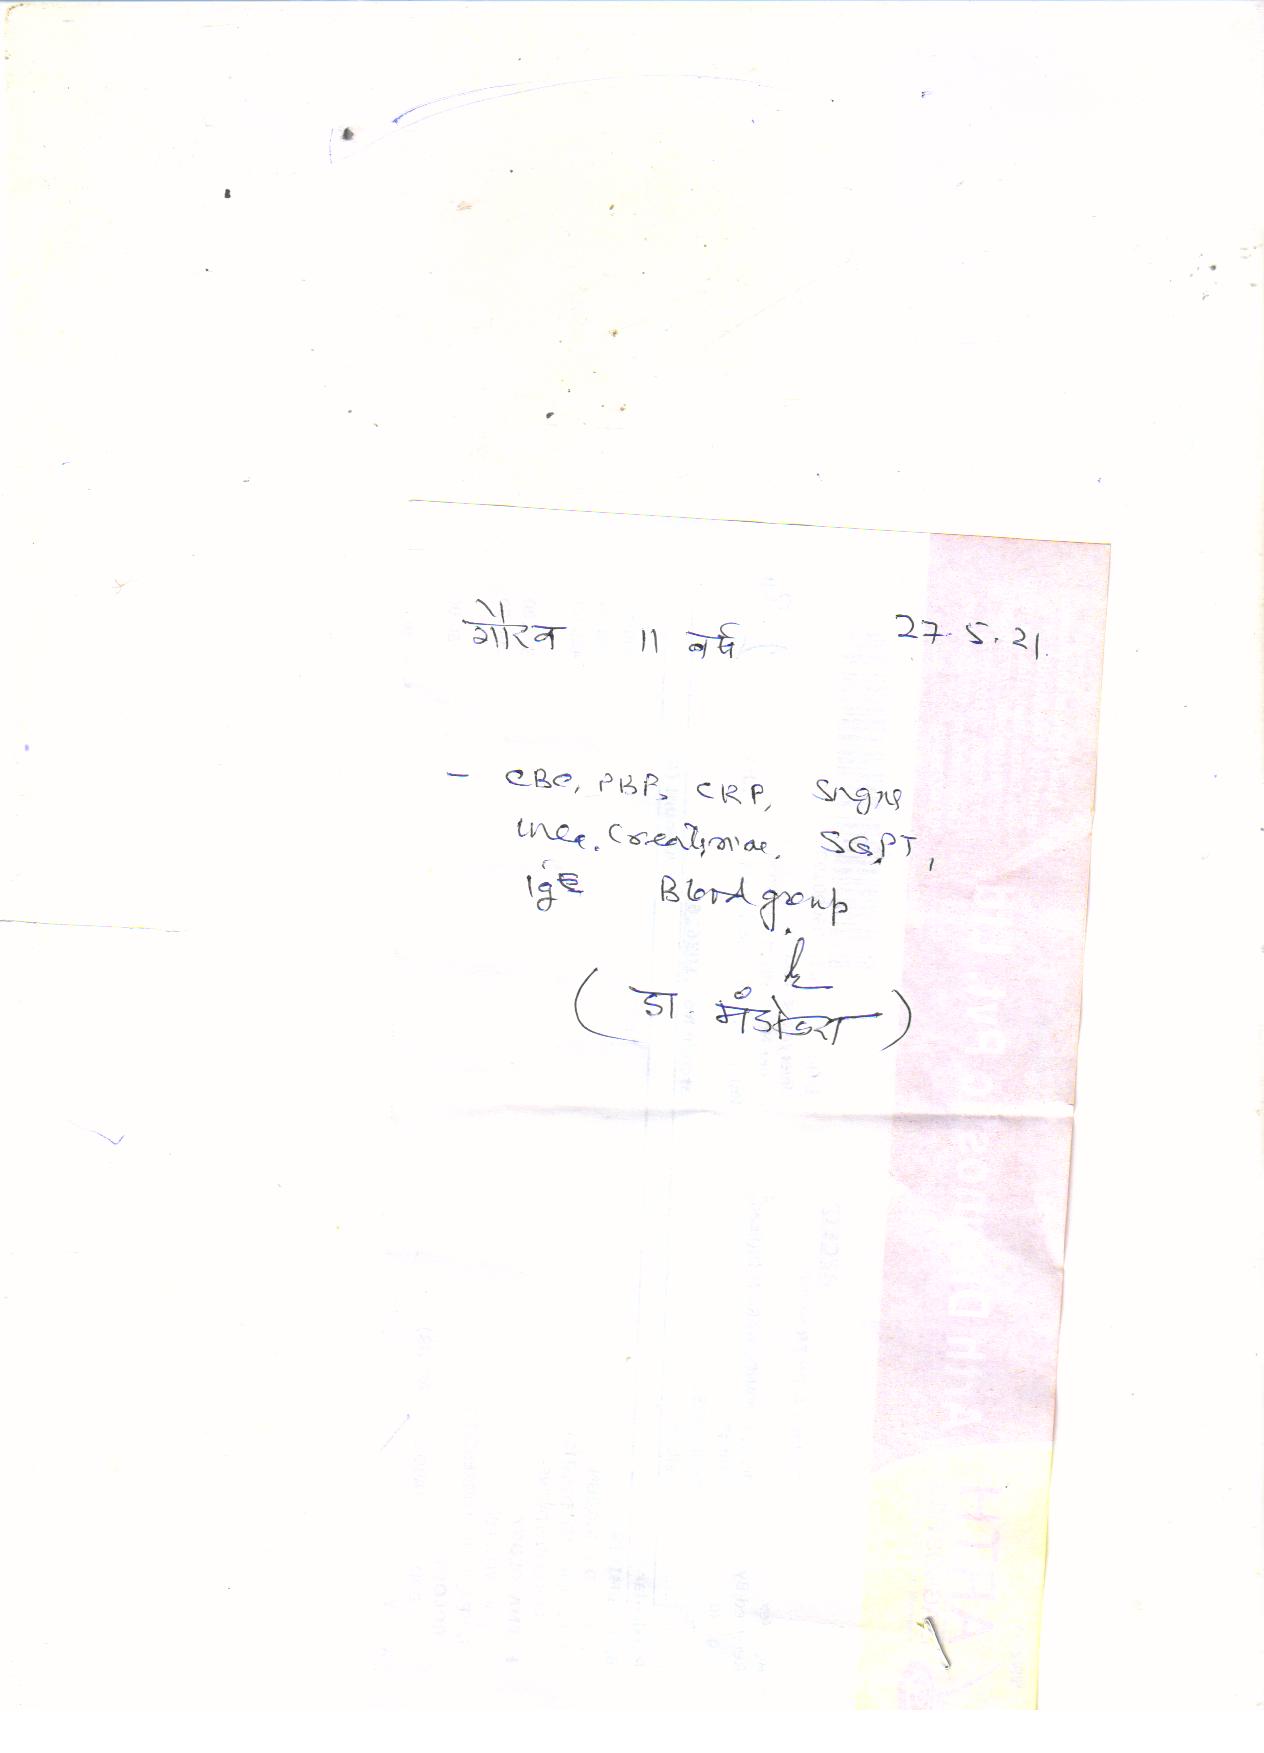 गौरव 11 वर्ष 27.5.21.
- CBC, PBF, CRP, Sugar
Urea, Creatinine, SGPT,
IgE Blood group
(डा. मंडोवरा)